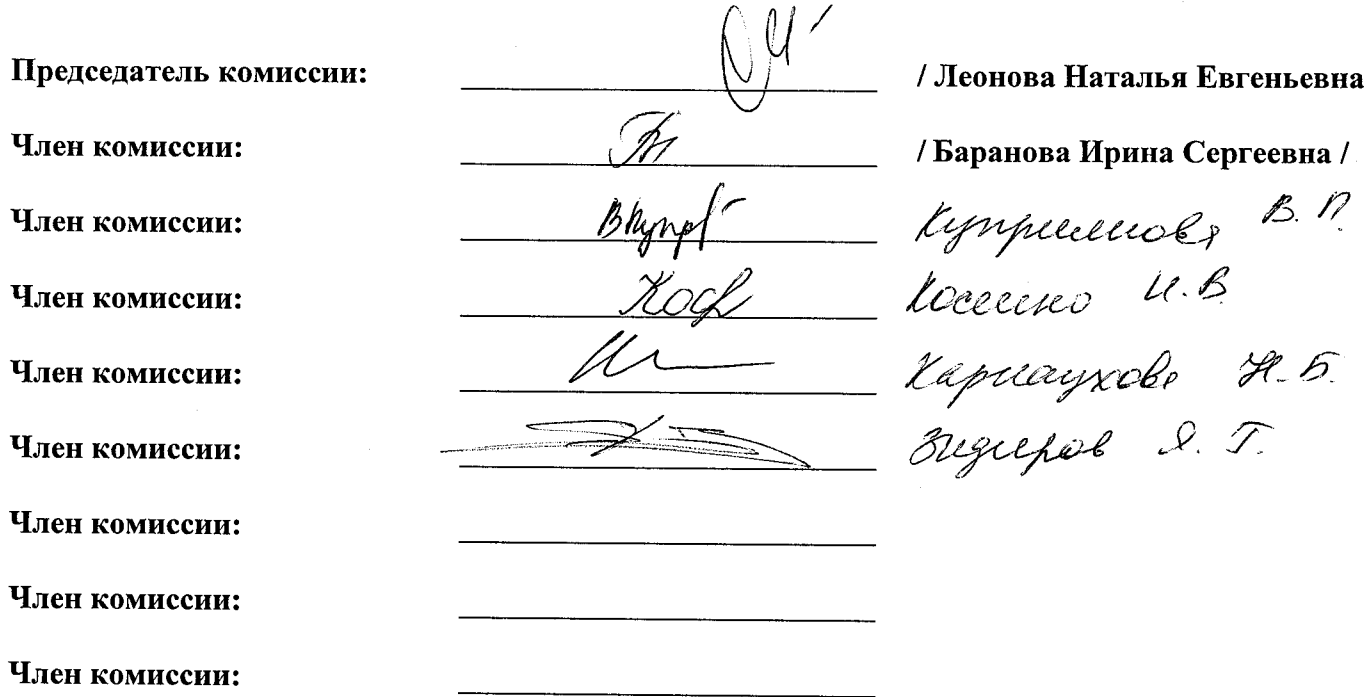 Председатель комиссии: / Леонова Наталья Евгеньевна
Член комиссии: / Баранова Ирина Сергеевна /
Член комиссии: В. П.
Член комиссии: И. В.
Член комиссии: Карнаухова Н. Б.
Член комиссии: Я. Г.
Член комиссии:
Член комиссии:
Член комиссии: